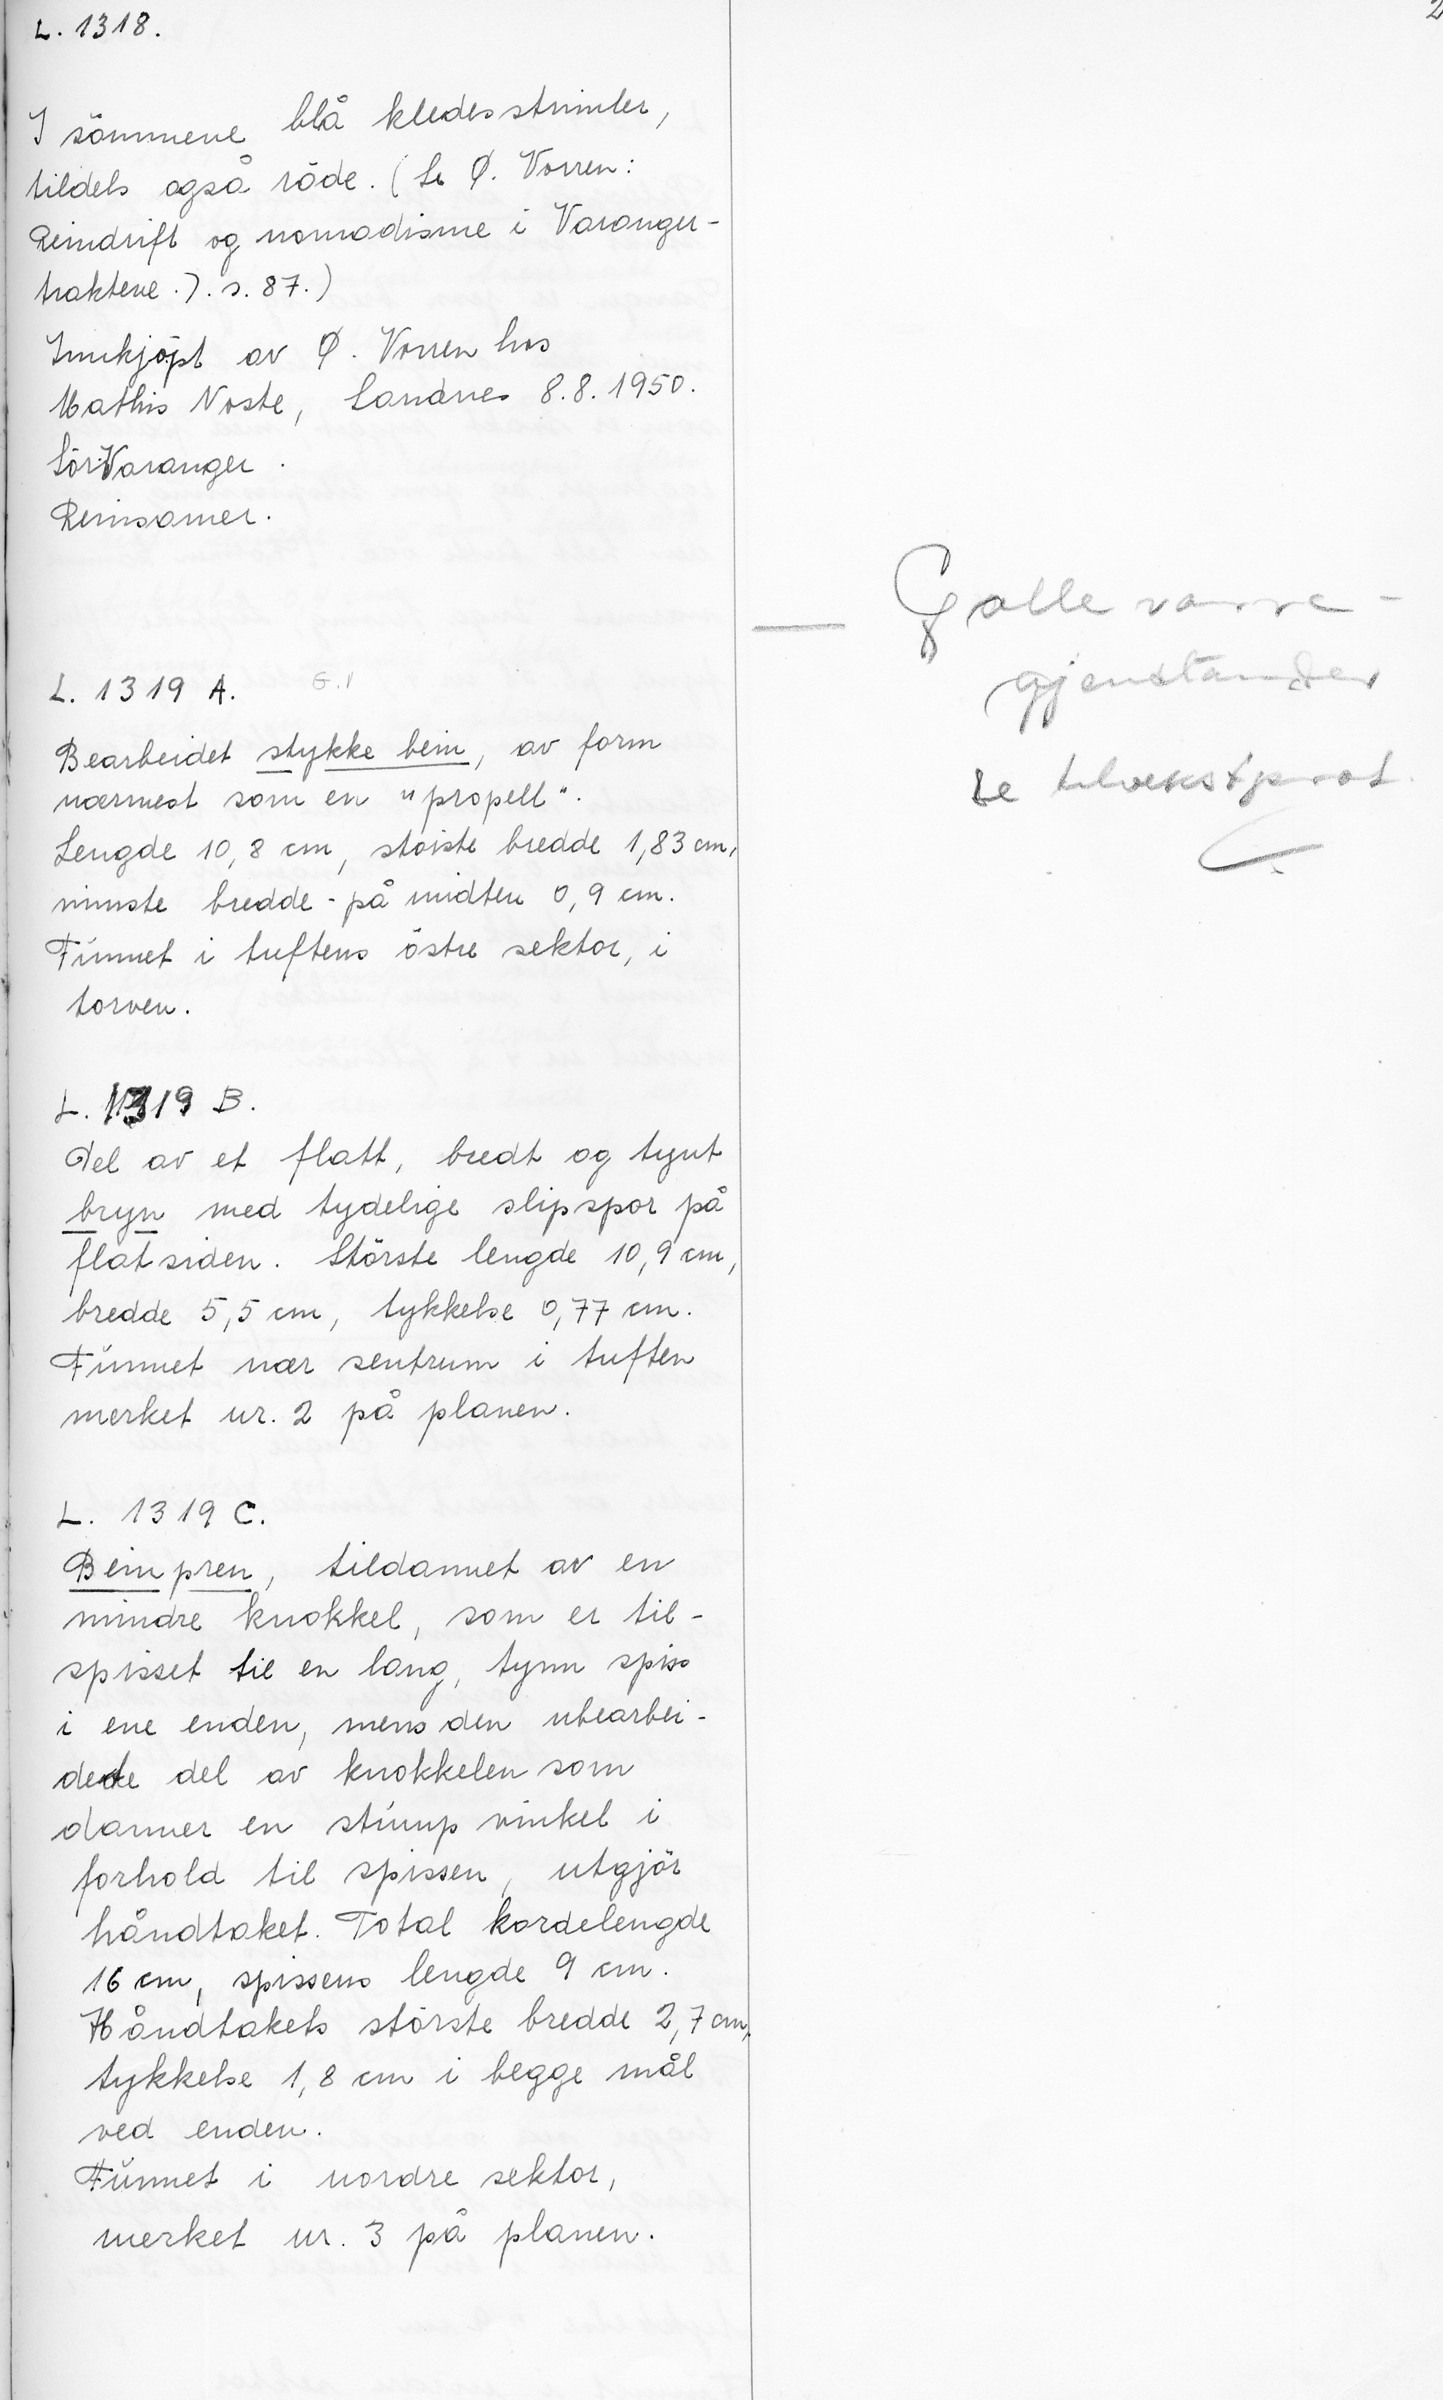 2
L. 1318.
I sömmene blå kledesstrimler,
tildels også röde. (Se Ø. Vorren:
Reindrift og nomadisme i Varanger-
traktene.). s. 87.)
Innkjøpt av Ø. Vorren hos
Mathis Noste, Sandnes 8.8.1950.
Sör-Varanger.
Reinsamer.
L. 1319 A. G.V
Bearbeidet stykke bein, av form
nærmest som en "propell".
Lengde 10,8 cm, største bredde 1,83 cm,
minste bredde - på midten 0,9 cm.
Funnet i tuftens östre sektor, i
torven.
L. 1319 B.
Del av et flatt, bredt og tynt
bryn med tydelige slipspor på
flatsiden. Störste lengde 10,9 cm,
bredde 5,5 cm, tykkelse 0,77 cm.
Funnet nær sentrum i tuften
merket nr. 2 på planen.
L. 1319 C.
Beinpren, tildannet av en
mindre knokkel, som er til-
spisset til en lang, tynn spiss
i ene enden, mens den ubearbei-
dede del av knokkelen som
danner en stump vinkel i
forhold til spissen, utgjör
håndtaket. Total kordelengde
16 cm, spissens lengde 9 cm.
Håndtakets störste bredde 2,7 cm,
tykkelse 1,8 cm i begge mål
ved enden.
Funnet i nordre sektor,
merket nr. 3 på planen.
— Gollevarre-
gjenstander
se tilvekstprot.